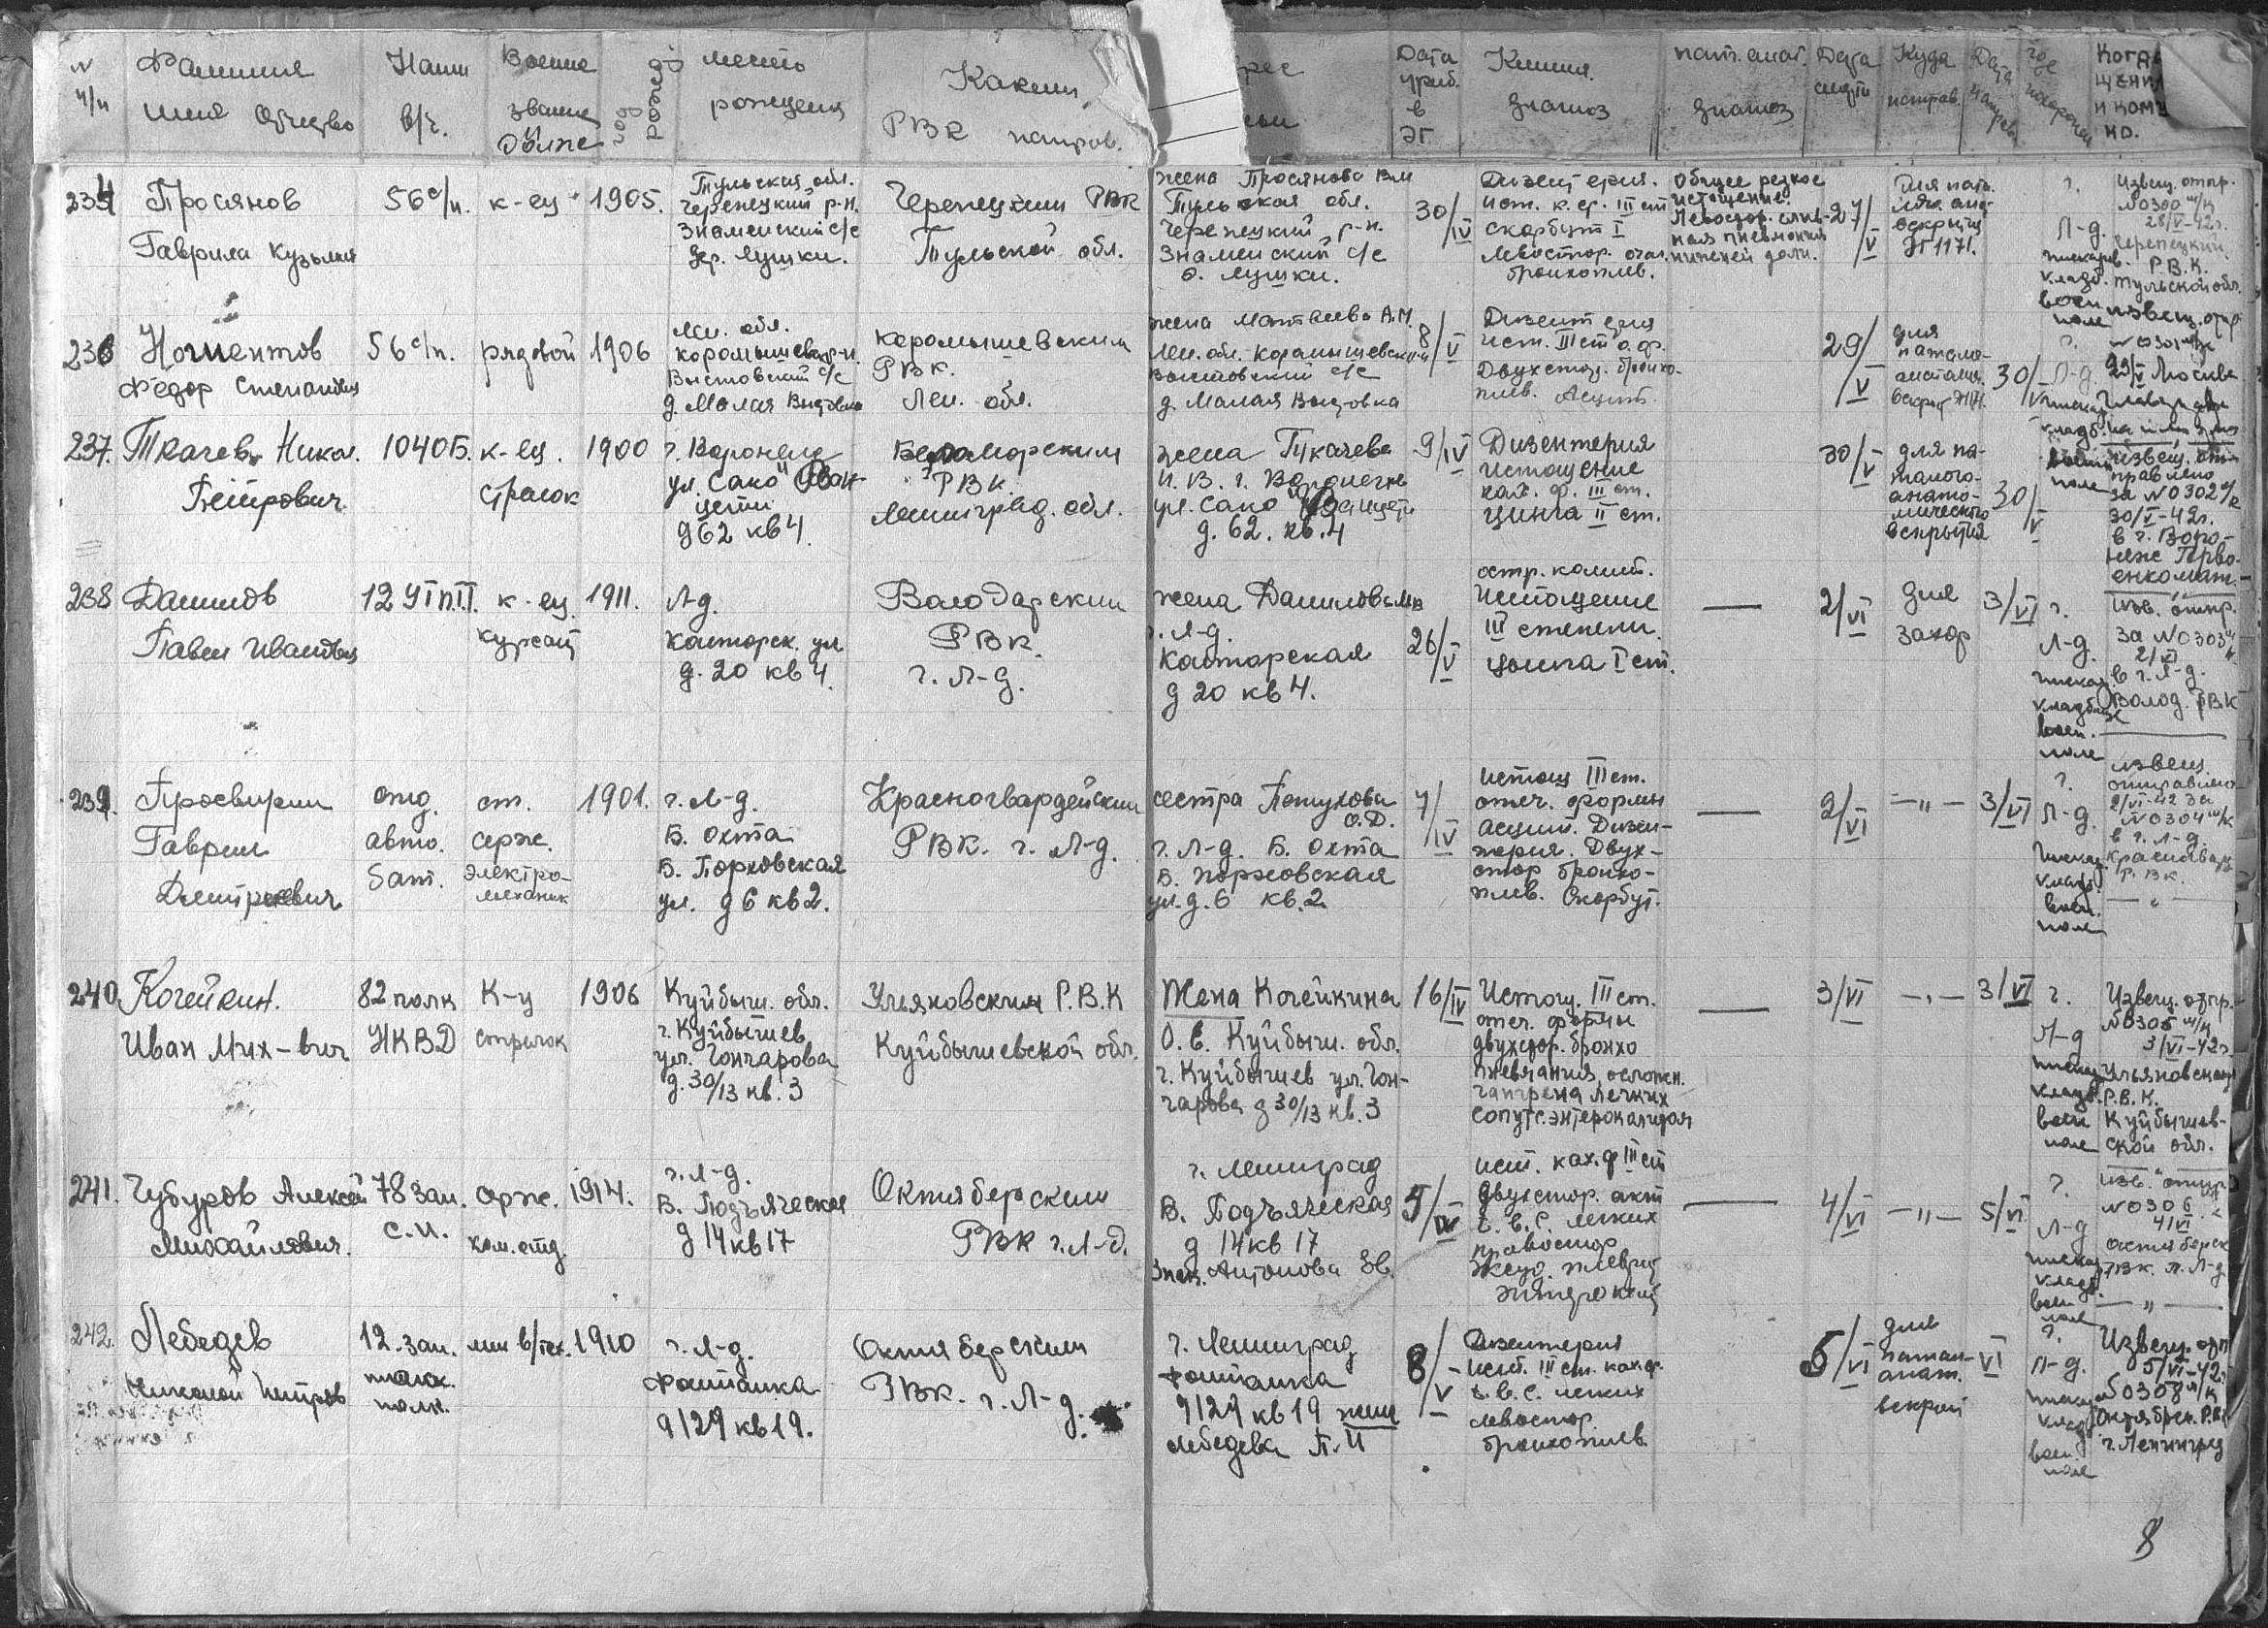 N п/п
Фамилия имя отчество
Наим в/ч.
Военное звание
год рожд.
место рождения
Каким РВК направ.
Дата приб. в ЭГ.
Клинич. диагноз
пат. анат. диагноз
Дата смерти
Куда направ.
Дата направ.
где похоронен
234
Просянов
Гаврила Кузьмич
56 с/п.
к-ец
1905.
Тульская обл.
Черепецкий р-н.
Знаменский с/с
дер. Лушки.
Черепецким РВК
Тульской обл.
жена Просянова
Тульская обл.
Черепецкий р-н.
Знаменский с/с
д. Лушки.
30/IV
Дизентерия.
ист. к. ф. III ст
скорбут I
Левостор. очаг.
бронхопнев.
Общее резкое
истощение.
Левостор.
ная пневмония
нижней доли.
27/V
для пат.
вскрытия
ЭГ 1171.
г.
Л-д.
пискарев.
кладб.
воен
поле
Извещ. отпр.
N 0300 м/к
28/V-42г.
Черепецкий.
Р.В.К.
Тульской обл.
236
Ногментов
Федор Степанович
56 с/п.
рядовой
1906
Лен. обл.
Карамышевск. р-н.
Выставский с/с
д. Малая
Карамышевским
РВК.
Лен. обл.
жена Матвеева А.М.
Лен. обл. Карамышевский
Выставский с/с
д. Малая
8/V
Дизентерия
ист. III ст о.ф.
Двухстор. бронхо-
пнев. Асцит.
29/V
для
патало-
анатом.
вскрыт
30/V
г.
Л-д.
пискар.
кладб.
воен
поле
извещ. отпр
N 0301 м/к
29/V Москва
237.
Ткачев Никол.
Петрович
1040Б.
к-ец.
стрелок
1900
г. Воронеж
ул. Сако и Ван-
цети
д 62 кв 4.
Беломорским
РВК.
Ленинград. обл.
жена Ткачева
И.В. г. Воронеж
ул. Сако и Ванцети
д. 62. кв. 4
9/IV
Дизентерия
истощение
ках. ф. III ст.
цинга II ст.
30/V
для па-
толого-
анато-
мического
вскрытия
30/V
извещ. от-
правлено
за N 0302 м/к
30/V-42г.
в г. Воро-
неж Горво-
енкомат.
238
Данилов
Павел Иванович
12 УТПП.
к-ец
курсант
1911.
Л-д.
Касторск. ул
д. 20 кв 4.
Володарским
РВК.
г. Л-д.
жена Данилова
г. Л-д.
Касторская
д 20 кв 4.
26/V
остр. колит.
Истощение
III степени.
цинга I ст.
—
2/VI
для
захор
3/VI
г.
Л-д.
пискар
кладбище
воен.
поле
Изв. отпр.
за N 0303 м/к
2/VI
в г. Л-д.
Волод. РВК
239.
Просвирин
Гавриил
Дмитриевич
отд.
авто.
бат.
ст.
серж.
электро-
механик
1901.
г. Л-д.
Б. Охта
Б. Порховская
ул. д 6 кв 2.
Красногвардейским
РВК. г. Л-д.
сестра Петухова
О.Д.
г. Л-д. Б. Охта
Б. порховская
ул. д. 6 кв. 2
7/IV
истощ III ст.
отеч. формы
асцит. Дизен-
терия. Двух-
стор бронхо-
пнев. Скорбут.
—
2/VI
— „ —
3/VI
г.
Л-д.
Пискар.
кладб.
воен.
поле
извещ
отправлено
2/VI-42 за
N 0304 м/к
в г. Л-д
Красногвард
Р.ВК.
— „ —
240
Кочейкин.
Иван Мих-вич
82 полк
НКВД
К-ц
стрелок
1906
Куйбыш. обл.
г. Куйбышев
ул. Гончарова
д. 30/13 кв. 3
Ульяновским Р.В.К
Куйбышевской обл.
Жена Кочейкина
О.Е. Куйбыш. обл.
г. Куйбышев ул. Гон-
чарова д 30/13 кв. 3
16/IV
Истощ. III ст.
отеч. формы
двухстор. бронхо
пневмания, осложн.
гангрена легких
сопутс. энтероколитом
—
3/VI
— „ —
3/VI
г.
Л-д
пискар
кладб.
воен
поле
Извещ. отпр.-
N 0305 м/к
3/VI-42г.
Ульяновский
Р.В.К.
Куйбышев-
ской обл.
241.
Чубуров Алексей
Михайлович.
78 зап.
с.п.
серж.
ком. отд
1914.
г. Л-д.
Б. Подъяческая
д 14 кв 17
Октябрьским
РВК г. Л-д.
г. Ленинград
Б. Подъяческая
д 14 кв 17
Антонова
5/IV
ист. ках. ф III ст
двухстор. акт
т.в.с. легких
правостор
эксуд. плеврит
энтероколит
—
4/VI
— „ —
5/VI
г.
Л-д
пискар
кладб.
воен
поле
Изв. отпр
N 0306
4/VI
октябрск
РВК. г. Л-д
— „ —
242.
Лебедев
Николай Петров
12. зап.
полк.
1910
г. Л-д.
Фонтанка
д 129 кв 19.
Октябрьским
РВК. г. Л-д.
г. Ленинград
Фонтанка
д 129 кв 19 жена
Лебедева П.И
8/V
Дизентерия
ист. III ст. ках. ф.
т.в.с. легких
левостор.
бронхопнев
5/VI
для
патал-
анат.
вскрыт
VI
г.
Л-д.
пискар
кладб
воен.
поле
Извещ. отп
5/VI-42г.
N 0308 м/к
Октябрск. Р.В.К
г. Ленинград
8